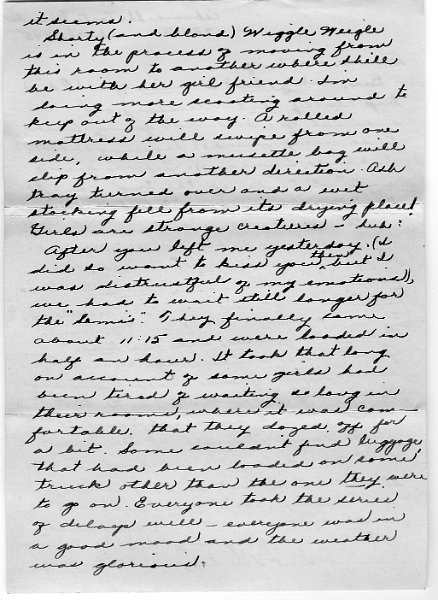 it seems.
Shorty (and blond) Wiggle Weigle
is in the process of moving from
this room to another where she'll
be with her girl friend. I'm
doing more scooting around to
keep out of the way. A rolled
mattress will swipe from one
side, while a musette bag will
slip from another derection. Ash
tray turned over and a wet
stocking fell from its drying place!
Girls are strange creatures - huh?
After you left me yesterday, (I
did so want to kiss you then, but I
was distrustful of my emotions),
we had to wait still longer for
the "semis". They finally came
about 11:15 and were loaded in
half an hour. It took that long
on account of some girls had
been tired of waiting so long in
their rooms, where it was com-
fortable, that they dozed off for
a bit. Some couldn't find luggage
that had been loaded on some
truck other than the one they were
to go on. Everyone took the series
of delays well - everyone was in
a good mood and the weather
was glorious.